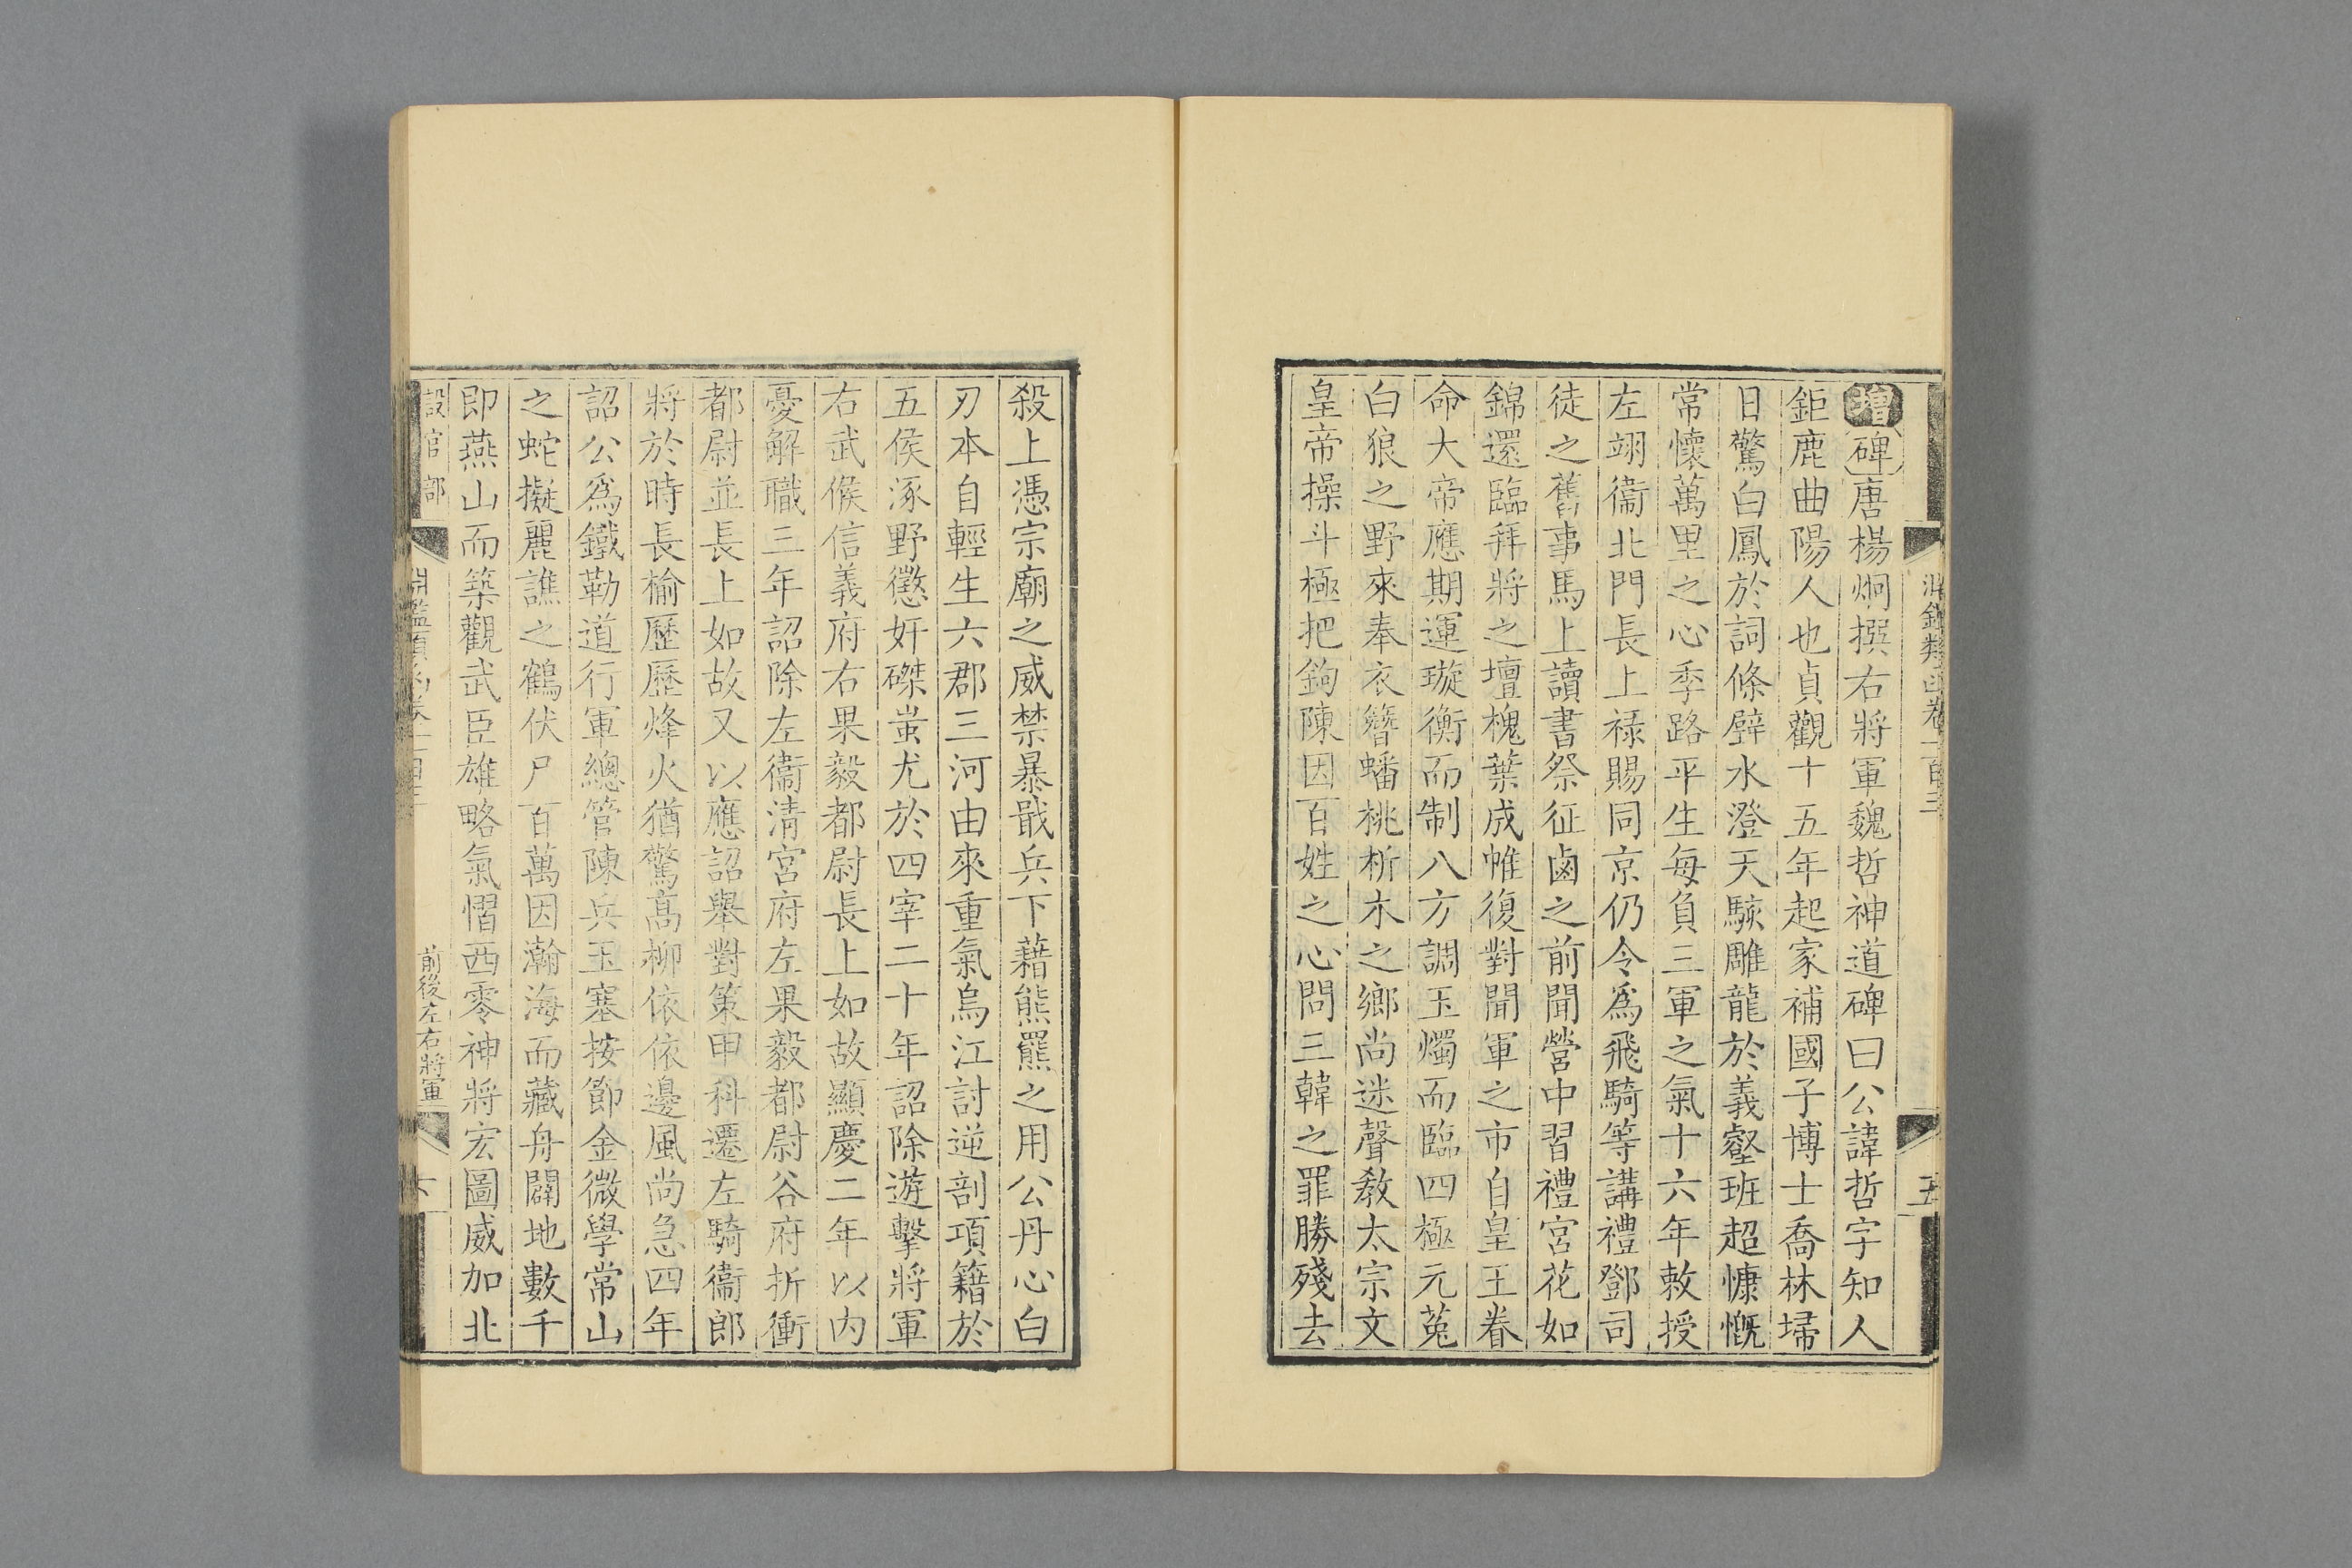 淵鑑類函卷一百三
五
增碑唐楊炯撰右將軍魏哲神道碑曰公諱哲字知人
鉅鹿曲陽人也貞觀十五年起家補國子博士喬林埽
日驚白鳳於詞條壁水澄天駭雕龍於義壑班超慷慨
常懷萬里之心季路平生每負三軍之氣十六年敕授
左翊衞北門長上祿賜同京仍令爲飛騎等講禮鄧司
徒之舊事馬上讀書祭征鹵之前聞營中習禮宮花如
錦還臨拜將之壇槐葉成帷復對聞軍之市自皇王眷
命大帝應期運璇衡而制八方調玉燭而臨四極元菟
白狼之野來奉衣簪蟠桃析木之鄉尚迷聲敎太宗文
皇帝操斗極把鉤陳因百姓之心問三韓之罪勝殘去
殺上憑宗廟之威禁暴戢兵下藉熊羆之用公丹心白
刃本自輕生六郡三河由來重氣烏江討逆剖項籍於
五侯涿野懲奸磔蚩尤於四宰二十年詔除遊擊將軍
右武候信義府右果毅都尉長上如故顯慶二年以內
憂解職三年詔除左衞清宮府左果毅都尉谷府折衝
都尉並長上如故又以應詔舉對策甲科遷左騎衞郎
將於時長榆歷歷烽火猶驚高柳依依邊風尚急四年
詔公爲鐵勒道行軍總管陳兵玉塞按節金微學常山
之蛇擬麗譙之鶴伏尸百萬因瀚海而藏舟闢地數千
即燕山而築觀武臣雄略氣慴西零神將宏圖威加北
設官部
淵鑑類函卷一百三
前後左右將軍
六